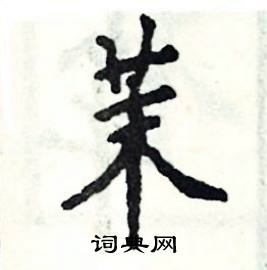 茉
词典网